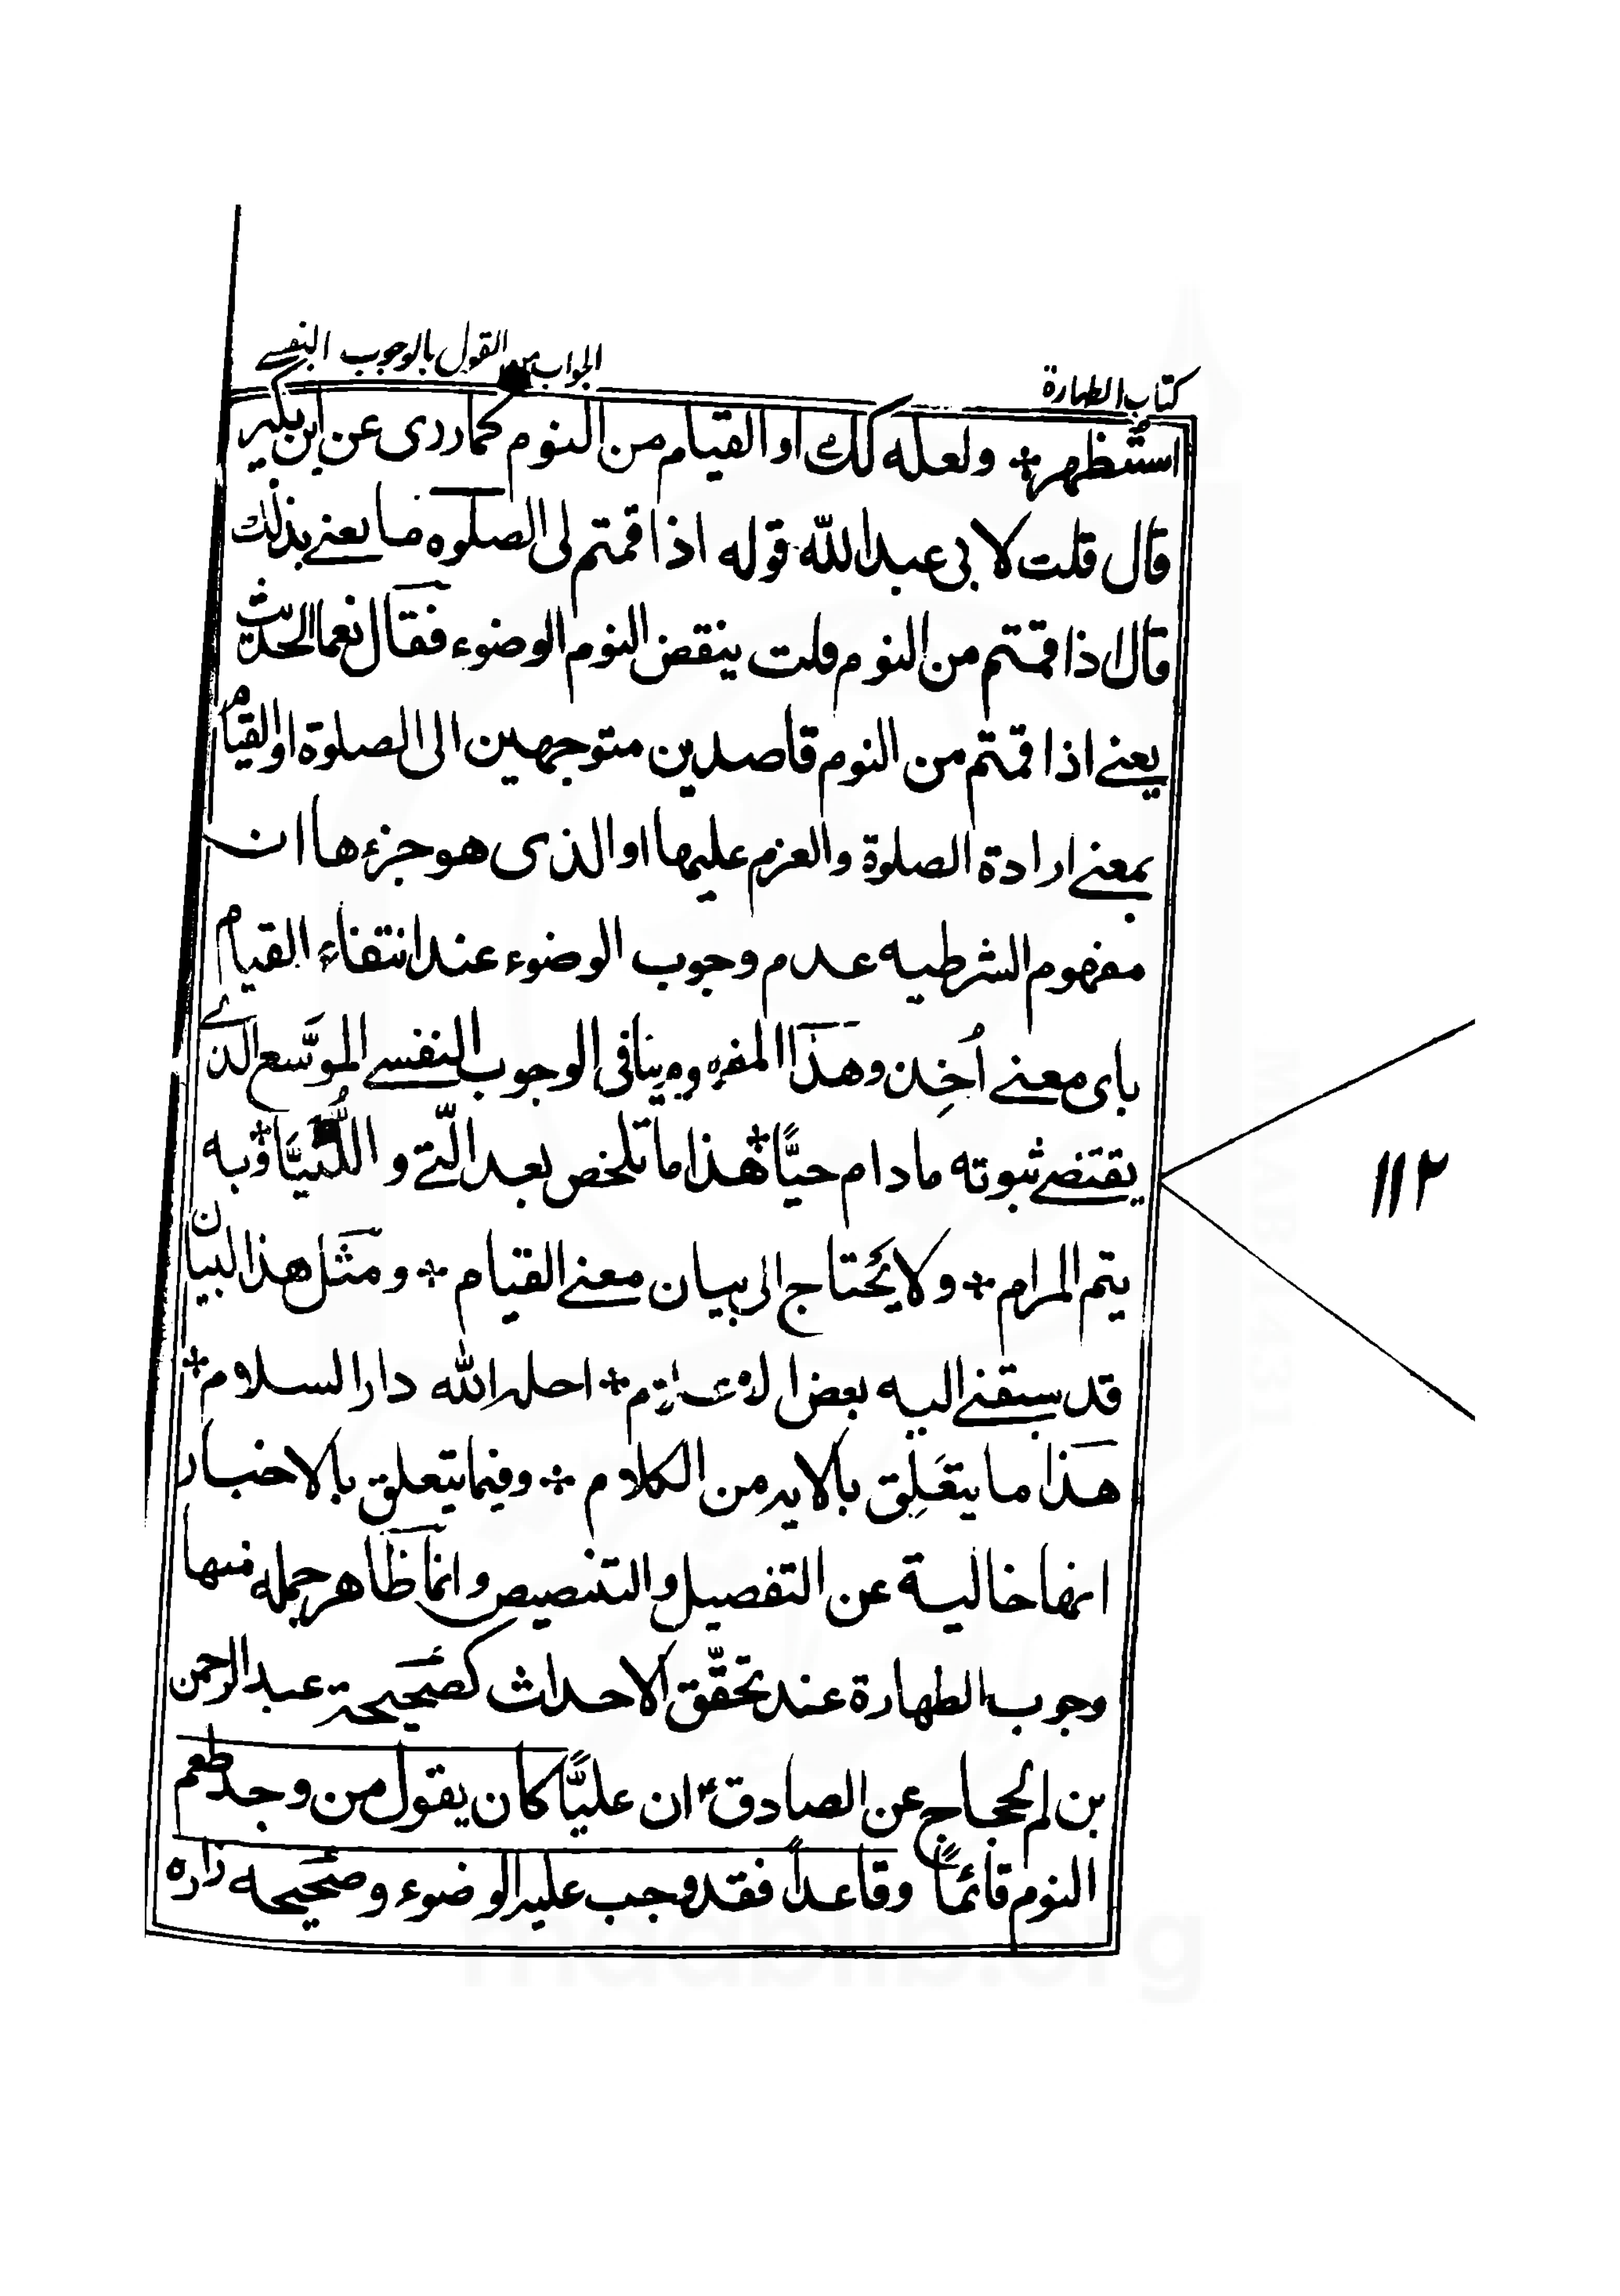 كتاب الطهارة
الجواب من القول بالوجوب النفسے
استظهر ولعله كك او القيام من النوم كما روى عن ابن بكير
قال قلت لابى عبد الله قوله اذا قمتم لى الصلوه ما يعنے بذلك
قال اذا قمتم من النوم قلت ينقض النوم الوضوء فقال نعم الحديث
يعنے اذا قمتم من النوم قاصدين متوجهين الى الصلوة او القيام
بمعنے ارادة الصلوة والعزم عليها او الذى هو جزءها ان
مفهوم الشرطيه عدم وجوب الوضوء عند انتفاء القيام
باى معنے اُخِذ وهذا المفهوم ينافى الوجوب النفسے الموسّع الذے
يقتضے ثبوته مادام حيًّا هذا ما تلخص بعد الّتے و اللُّتيَّا وبه
يتم المرام ولا يُحتاج الى بيان معنے القيام ومثل هذا البيان
قد سبقنے اليه بعض الاعلام احله الله دار السلام
هذا ما يتعَلِق بالايه من الكلام وفيما يتعلق بالاخبار
انها خالية عن التفصيل والتنصيص وانما ظاهر جمله منها
وجوب الطهارة عند تحقّق الاحداث كصحيحة عبد الرحمن
بن الحجاج عن الصادق ع ان عليًّا كان يقول من وجد طعم
النوم قائمًا وقاعداً فقد وجب عليه الوضوء وصحيحه زراره
١١٢
maablib.org